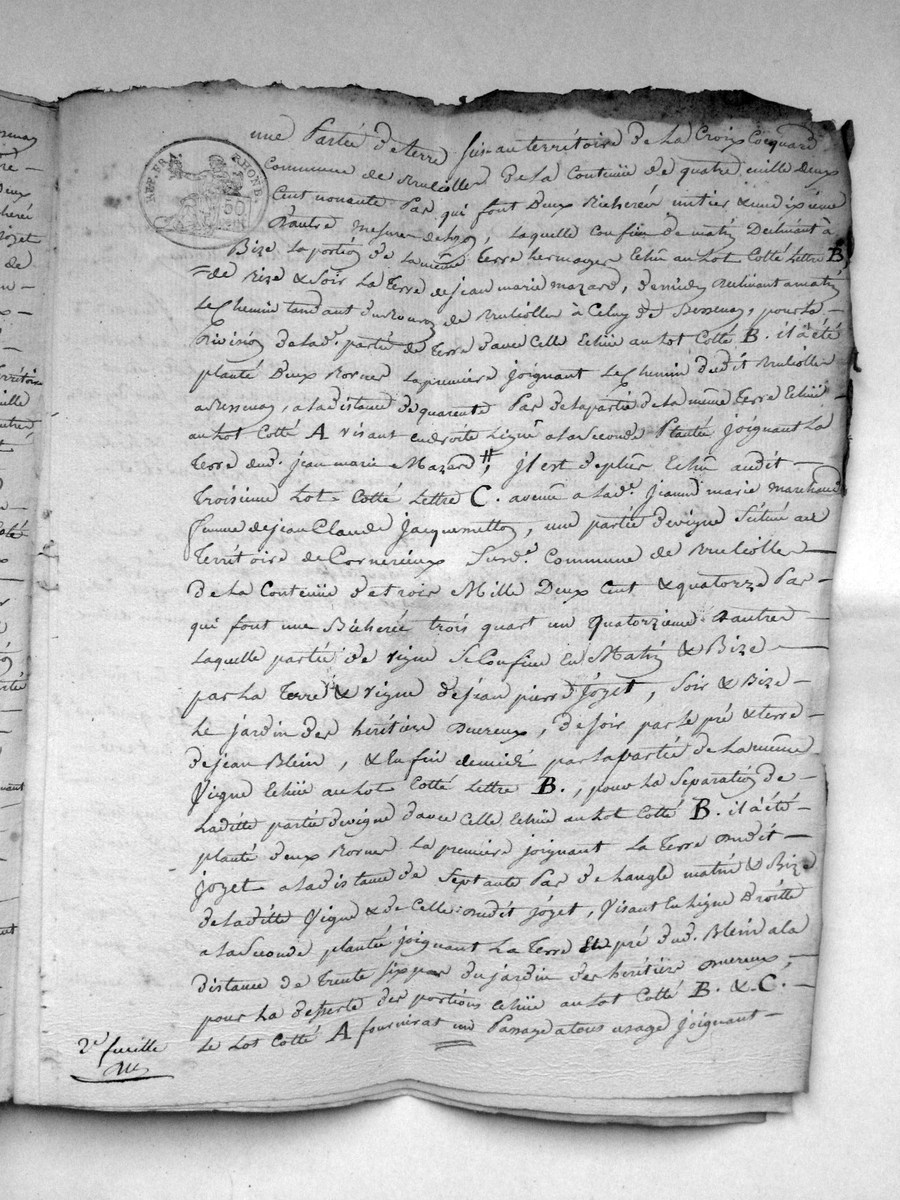 une Partée de terre sise au territoire de La Croix Cocquard
REP. FRA. RHONE. 50
Commune de Brulioller de La Contenüe de quatre mille deux
Cent nonente Pas qui font Deux Bicherées
d'autre mesure de Lyon, Laquelle Confine de matin Déclinant à
Bize La portion de La même Terre hermage Echüe au Lot Cotté Lettre B
de Bize & Soir La Terre de jean marie mazard, de midy declinant a matin
Le Chemin tendant du Bourg de Bruliolle à Celuy de Bessenay, pour La
Division de Lad.e partie de Terre d'avec Celle Echüe au Lot Cotté B. il a été
planté Deux Bornes La premiere joignant Le Chemin dudit Bruliolle
a Bessenay, a La distance de quarente Pas de La partie de La même Terre Echüe
au Lot Cotté A visant en droite Ligne a La Seconde Plantée joignant La
Terre dud. jean marie Mazard, jl est de plus Echüe audit
Troisieme Lot Cotté Lettre C. avenu a Lad.e jeanne marie marchand
femme de jean Claude Jacquemetton, une partie de vigne Situëe au
Territoire de Cornerieux Susd.e Commune de Bruliolle
de La Contenüe de trois Mille Deux Cent & quatorze Pas
qui font une Bicherée trois quart un Quatorzieme d'autre
Laquelle partie de vigne Se Confine En Matin & Bize
par La Terre & vigne de jean pierre Jóyet, Soir & Bize
Le jardin des heritiers Dureux, de soir par Le pré & terre
de jean Blein, & Enfin de midi par La partée de La même
Vigne Echüe au Lot Cotté Lettre B., pour La Separation de
Ladditte partie de vigne d'avec Celle Echüe au Lot Cotté B. il a été
planté deux Bornes La premiere joignant La Terre dudit
joyet a La distance de Septante Pas de Langle matin & Bize
de Laditte Vigne & de Celle dudit jóyet, Visant En Ligne Droitte
a La Seconde plantée joignant La Terre Et pré dud. Blein a La
distance de Trente Six pas du jardin des heritiers Dureux,
pour La desserte des portions Echüe au Lot Cotté B. & C.
Le Lot Cotté A fournirat un Passage a tous usage joignant
2e feuille